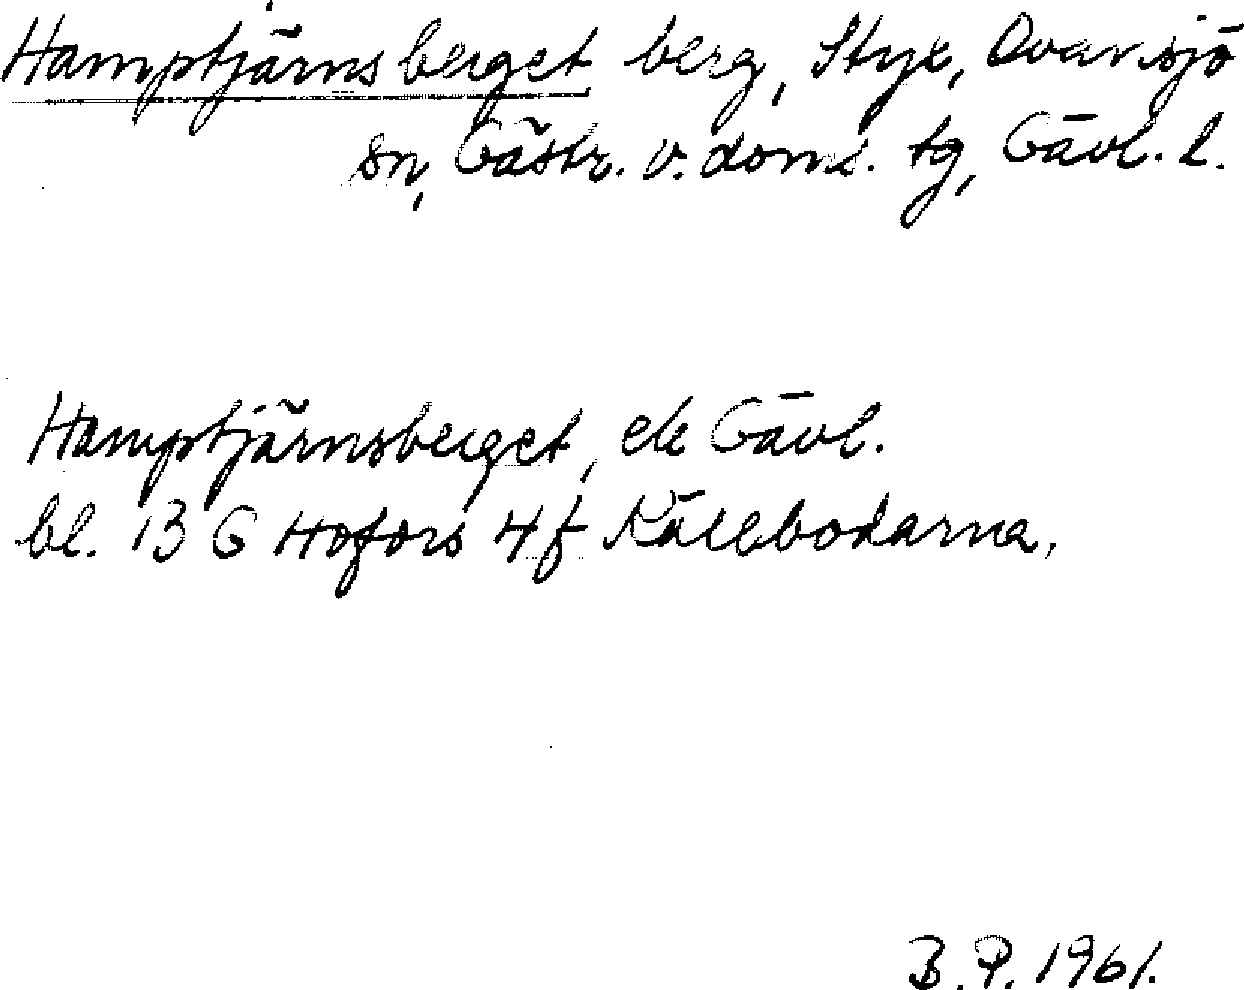 Hamptjärnsberget berg, Stye, Ovansjö
sn, Gästr. v. doms. tg, Gävl. l.
Hamptjärnsberget, ek Gävl.
bl. 13 G Hofors 4f Källbodarna.
B. P. 1961.